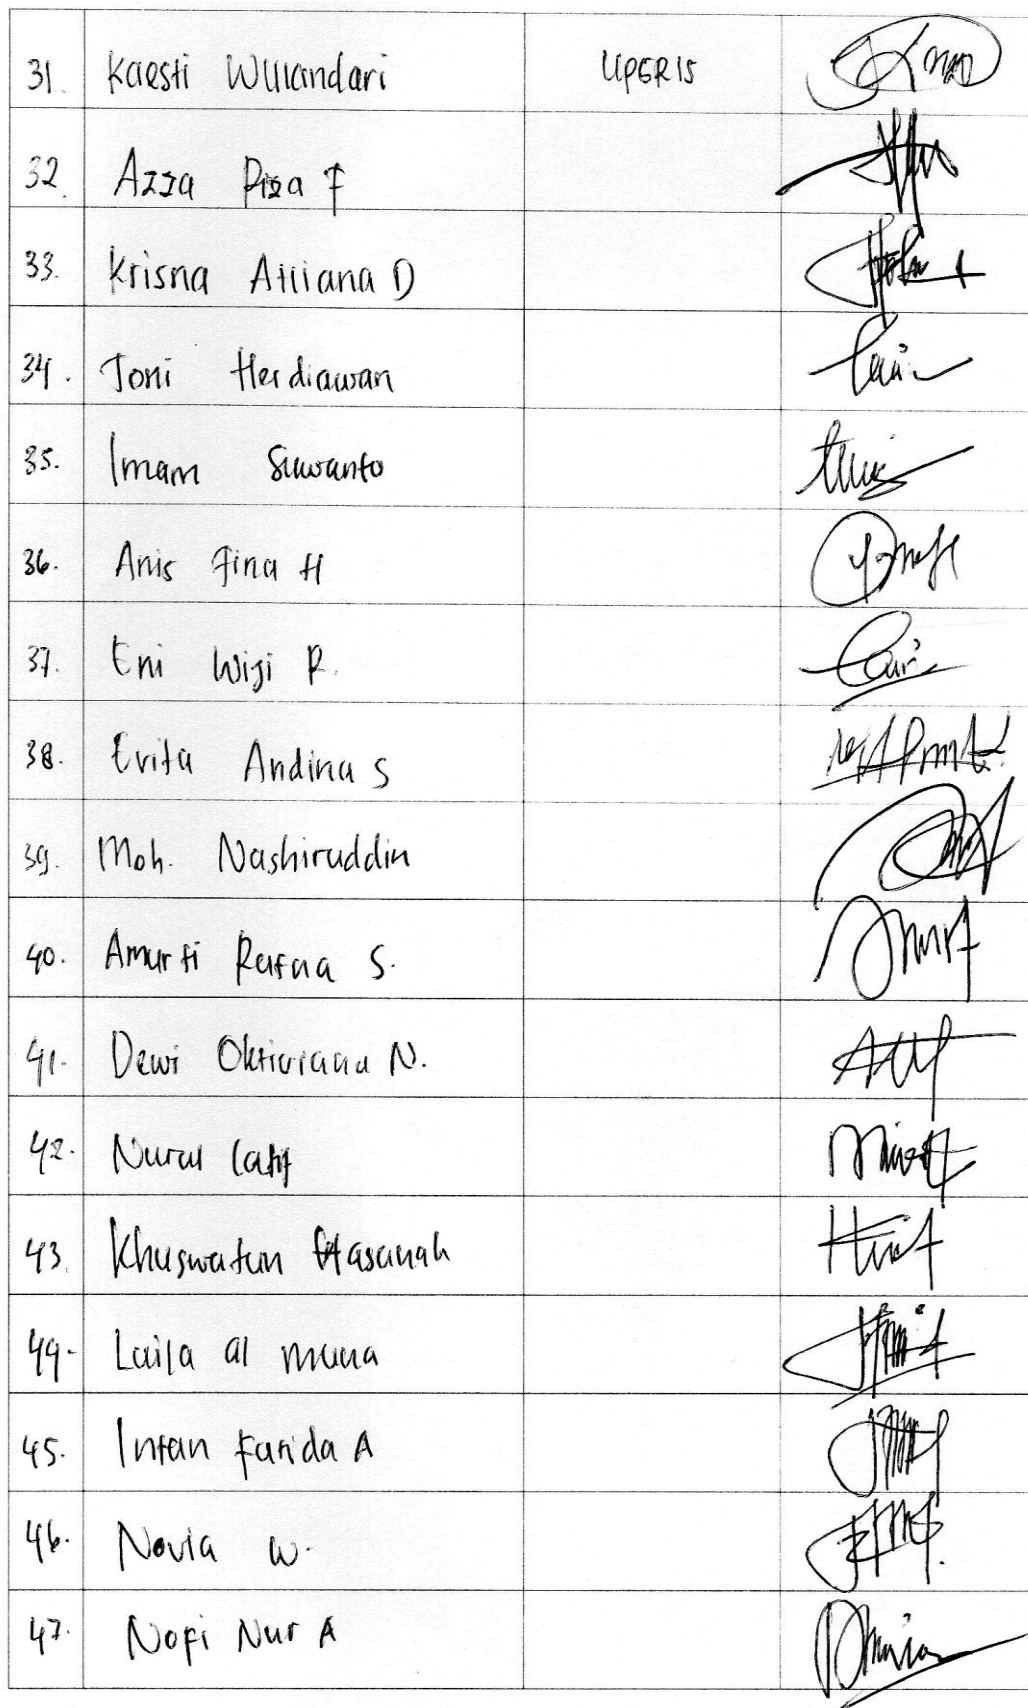 31. Kaesti Wulandari UPGRIS
32. Azza Piza F
33. Krisna Alliana D
34. Joni Herdiawan
35. Imam Suwanto
36. Anis Fina H
37. Eni Wiji R.
38. Evita Andina S
39. Moh. Nashiruddin
40. Amurti Ratna S.
41. Dewi Oktiviana N.
42. Nurul Latif
43. Khuswatun Hasanah
44. Laila al muna
45. Intan Farida A
46. Novia W.
47. Nofi Nur A